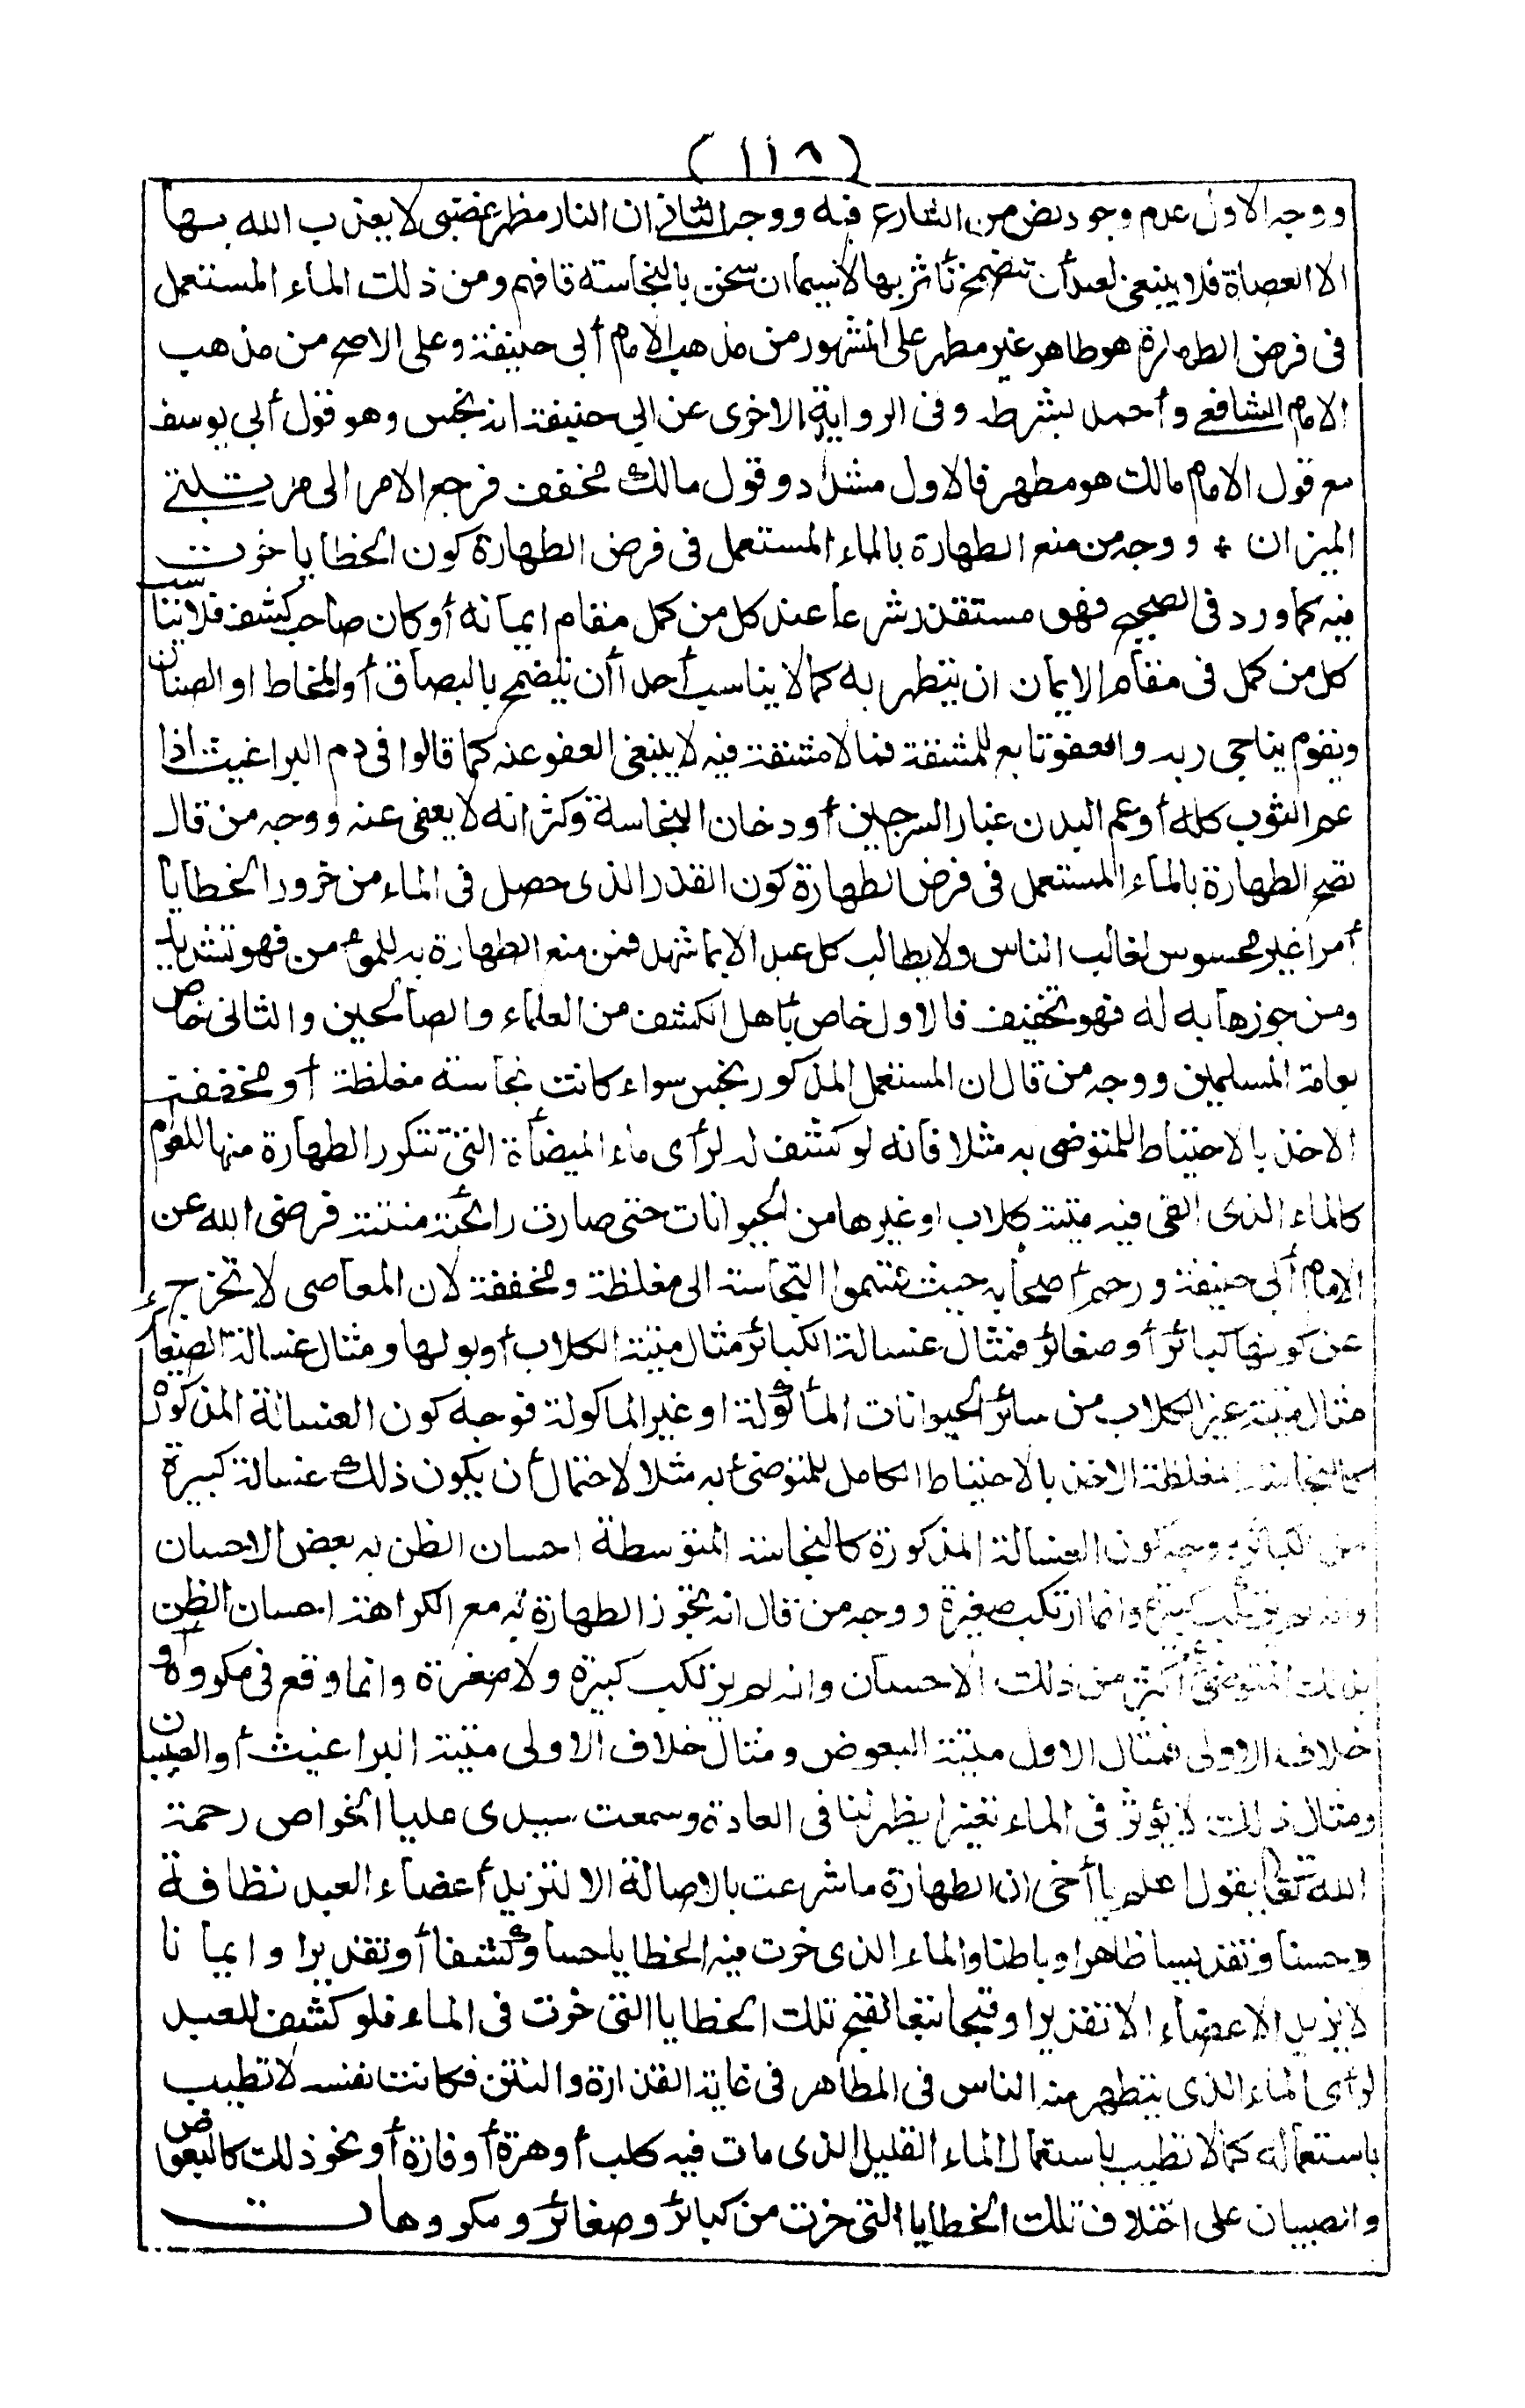 (١١٨)
ووجه الاول عدم وجود نص من الشارع فيه ووجه الثاني ان النار مظهر غضبى لا يعذب الله بها
الا العصاة فلا ينبغي لعبد أن يتضمخ بأثر بها لاسيما ان سخن بالنجاسة فافهم ومن ذلك الماء المستعمل
فى فرض الطهارة هو طاهر غير مطهر على المشهور من مذهب الامام أبى حنيفة وعلى الاصح من مذهب
الامام الشافعي وأحمد بشرطه وفى الرواية الاخرى عن ابي حنيفة انه نجس وهو قول أبي يوسف
مع قول الامام مالك هو مطهر فالاول مشدد وقول مالك مخفف فرجع الامر الى مرتبتي
الميزان * ووجه من منع الطهارة بالماء المستعمل فى فرض الطهارة كون الخطايا خرت
فيه كما ورد فى الصحيح فهو مستقذر شرعا عند كل من كمل مقام ايمانه أو كان صاحب كشف فلا يناسب
كل من كمل فى مقام الايمان ان يتطهر به كما لا يناسب أحدا أن يتضمخ بالبصاق أو المخاط او الصنان
ويقوم يناجى ربه والعفو تابع للمشقة فما لا مشقة فيه لا ينبغى العفو عنه كما قالوا فى دم البراغيث اذا
عم الثوب كله أو عم البدن غبار السرجين أو دخان النجاسة وكثر انه لا يعفى عنه ووجه من قال
تصح الطهارة بالماء المستعمل فى فرض الطهارة كون القذر الذى حصل فى الماء من خرور الخطايا
أمرا غير محسوس لغالب الناس ولا يطالب كل عبد الا بما شهد فمن منع الطهارة به للمؤمن فهو تشديد
ومن جوزها به له فهو تخفيف فالاول خاص بأهل الكشف من العلماء والصالحين والثانى خاص
بعامة المسلمين ووجه من قال ان المستعمل المذكور نجس سواء كانت نجاسته مغلظة أو مخففة
الاخذ بالاحتياط للمتوضى به مثلا فانه لو كشف له لرأى ماء الميضأة التى تتكرر الطهارة منها للعوام
كالماء الذى القى فيه ميتة كلاب او غيرها من الحيوانات حتى صارت رائحته منتنة فرضى الله عن
الامام أبى حنيفة ورحم أصحابه حيث قسموا النجاسة الى مغلظة ومخففة لان المعاصى لا تخرج
عن كونها كبائر أو صغائر فمثال غسالة الكبائر مثال ميتة الكلاب أو بولها ومثال غسالة الصغائر
مثال ميتة غير الكلاب من سائر الحيوانات المأكولة او غير الماكولة فوجه كون الغسالة المذكورة
كالنجاسة المغلظة الاخذ بالاحتياط الكامل للمتوضئ به مثلا لاحتمال أن يكون ذلك غسالة كبيرة
من الكبائر ووجه كون الغسالة المذكورة كالنجاسة المتوسطة احسان الظن به بعض الاحسان
وانه لم يرتكب كبيرة وانما ارتكب صغيرة ووجه من قال انه تجوز الطهارة به مع الكراهة احسان الظن
بذلك المتوضئ أكثر من ذلك الاحسان وانه لم يرتكب كبيرة ولا صغيرة وانما وقع فى مكروه أو
خلاف الاولى فمثال الاول ميتة البعوض ومثال خلاف الاولى ميتة البراغيث أو الصيبان
ومثال ذلك لا يؤثر فى الماء تغيرا يظهر لنا فى العادة وسمعت سيدى عليا الخواص رحمة
الله تعالى يقول اعلم يا أخى ان الطهارة ما شرعت بالاصالة الا لتزيد أعضاء العبد نظافة
وحسنا وتقديسا ظاهرا وباطنا والماء الذى خرت فيه الخطايا حسا وكشفا أو تقديرا وايمانا
لا يزيد الاعضاء الا تقذيرا وقبحا تبعا لقبح تلك الخطايا التى خرت فى الماء فلو كشف للعبد
لرأى الماء الذى يتطهر منه الناس فى المطاهر فى غاية القذارة والنتن فكانت نفسه لا تطيب
باستعماله كما لا تطيب باستعمال الماء القليل الذى مات فيه كلب أو هرة أو فارة أو نحو ذلك كالبعوض
والصيبان على اختلاف تلك الخطايا التى خرت من كبائر وصغائر ومكروهات